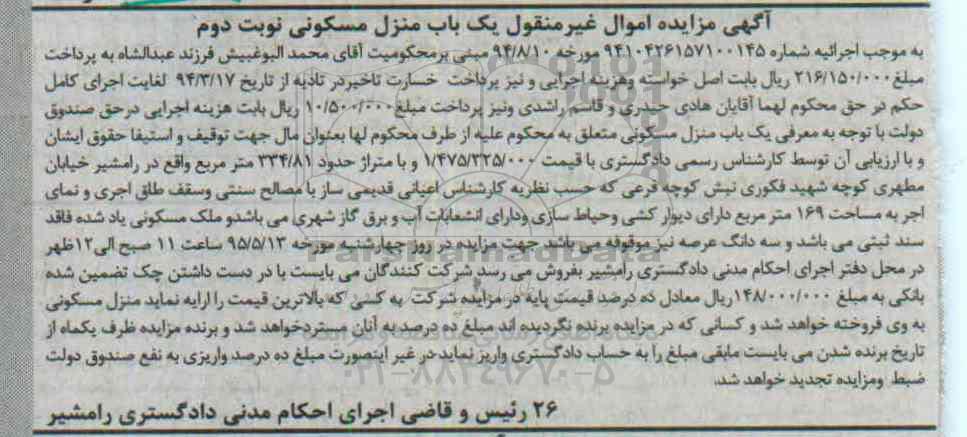 آگهی مزایده اموال غیرمنقول یک باب منزل مسکونی نوبت دوم
به موجب اجرائیه شماره ۹۴۱۰۴۲۶۱۵۷۱۰۰۱۴۵ مورخه ۹۴/۸/۱۰ مبنی برمحکومیت آقای محمد البوغبیش فرزند عبدالشاه به پرداخت
مبلغ۲۱۶/۱۵۰/۰۰۰ ریال بابت اصل خواسته وهزینه اجرایی و نیز پرداخت خسارت تاخیردر تادیه از تاریخ ۹۴/۳/۱۷ لغایت اجرای کامل
حکم در حق محکوم لهما آقایان هادی حیدری و قاسم راشدی ونیز پرداخت مبلغ۱۰/۵۰۰/۰۰۰ ریال بابت هزینه اجرایی درحق صندوق
دولت با توجه به معرفی یک باب منزل مسکونی متعلق به محکوم علیه از طرف محکوم لها بعنوان مال جهت توقیف و استیفا حقوق ایشان
و با ارزیابی آن توسط کارشناس رسمی دادگستری با قیمت ۱/۴۷۵/۳۲۵/۰۰۰ و با متراژ حدود ۳۳۴/۸۱ متر مربع واقع در رامشیر خیابان
مطهری کوچه شهید فکوری نبش کوچه فرعی که حسب نظریه کارشناس اعیانی قدیمی ساز با مصالح سنتی وسقف طاق اجری و نمای
اجر به مساحت ۱۶۹ متر مربع دارای دیوار کشی وحیاط سازی ودارای انشعابات آب و برق گاز شهری می باشدو ملک مسکونی یاد شده فاقد
سند ثبتی می باشد و سه دانگ عرصه نیز موقوفه می باشد جهت مزایده در روز چهارشنبه مورخه ۹۵/۵/۱۳ ساعت ۱۱ صبح الی۱۲ظهر
در محل دفتر اجرای احکام مدنی دادگستری رامشیر بفروش می رسد شرکت کنندگان می بایست با در دست داشتن چک تضمین شده
بانکی به مبلغ ۱۴۸/۰۰۰/۰۰۰ریال معادل ده درصد قیمت پایه در مزایده شرکت به کسی که بالاترین قیمت را ارایه نماید منزل مسکونی
به وی فروخته خواهد شد و کسانی که در مزایده برنده نگردیده اند مبلغ ده درصد به آنان مستردخواهد شد و برنده مزایده ظرف یکماه از
تاریخ برنده شدن می بایست مابقی مبلغ را به حساب دادگستری واریز نماید در غیر اینصورت مبلغ ده درصد واریزی به نفع صندوق دولت
ضبط ومزایده تجدید خواهد شد.
۲۶ رئیس و قاضی اجرای احکام مدنی دادگستری رامشیر
ParsNamadData
۰۲۱-۸۸۳۴۹۶۷۰-۵